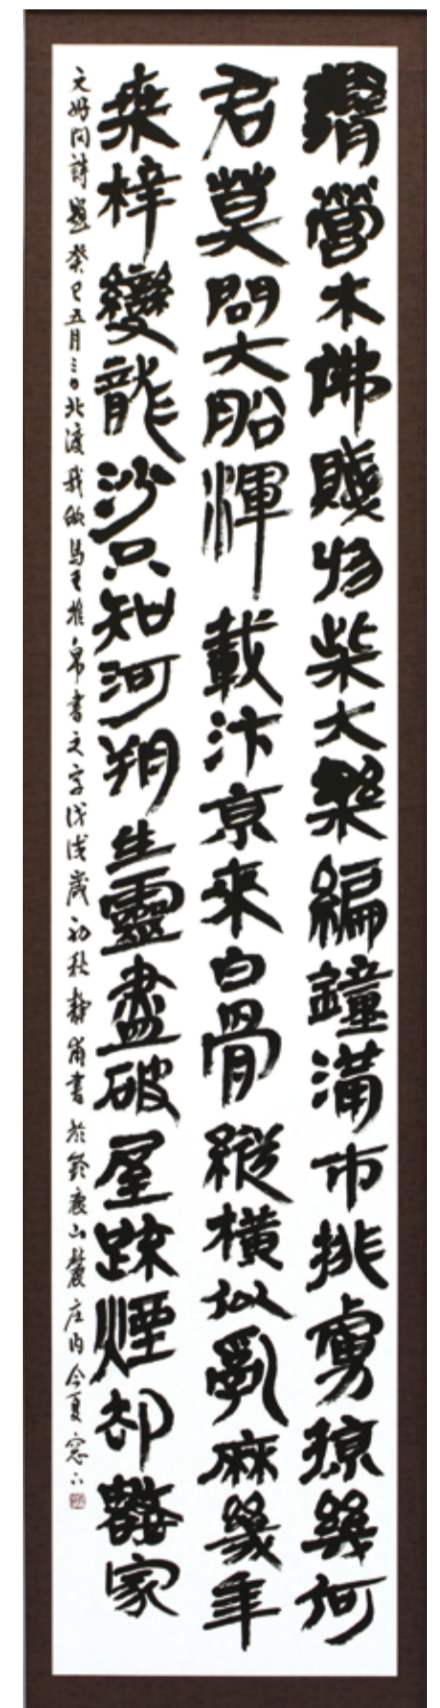 隨營木佛賤於柴大樂編鐘滿市排虜掠幾何
君莫問大船渾載汴京來白骨縱橫似亂麻幾年
桑梓變龍沙只知河朔生靈盡破屋疎煙却數家
元好問詩題癸巳五月三日北渡馬王堆帛書文字戊戌歳初秋靜宵書於鈴鹿山麓庄内今夏窓下